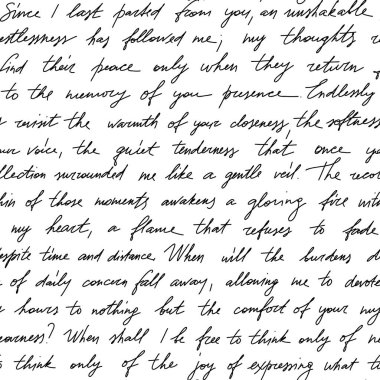 Since I last parted from you, an unshakable
restlessness has followed me; my thoughts
find their peace only when they return
to the memory of you presence. Endlessly
revisit the warmth of your closeness, the softness
your voice, the quiet tenderness that, once
llection surrounded me like a gentle veil. The reco
thin of those moments awakens a gloring fire wit
my heart, a flame that refuses to fade
despite time and distance. When will the burdens
of daily concern fall away, allowing me to devote
hours to nothing but the comfort of your my
earness? When shall I be free to think only of
to think only of the joy of expressing what